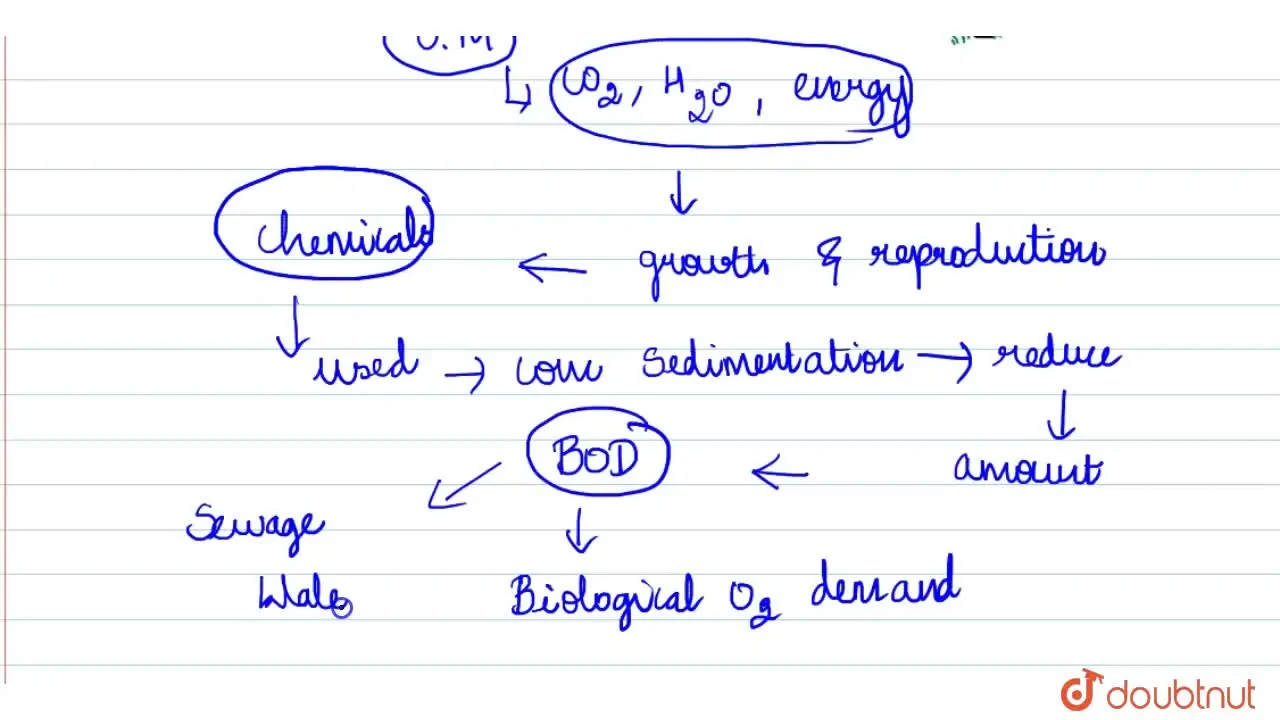 O.M
↳ CO2, H2O, energy
↓
Chemicals ← growth & reproduction
↓
used → conc sedimentation → reduce
↓
BOD ← amount
↙ ↓
Sewage
Wate Biological O2 demand
doubtnut